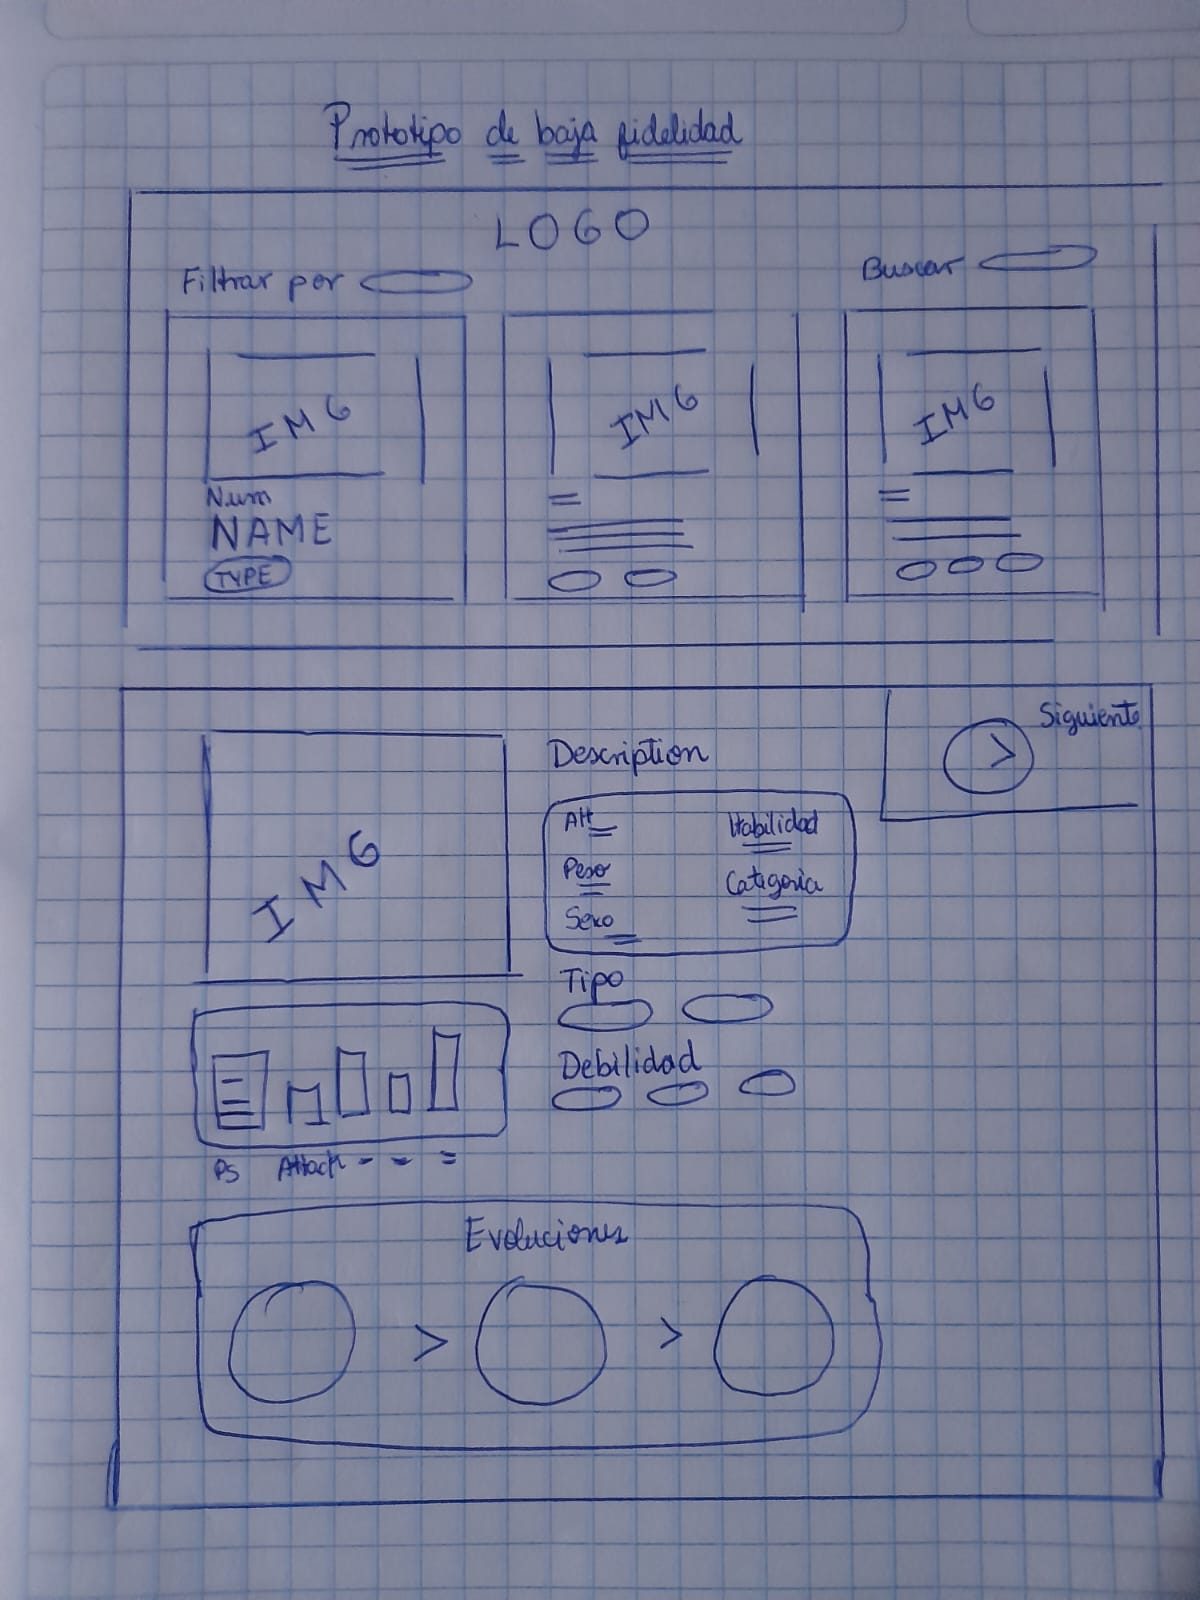 Prototipo de baja fidelidad
LOGO
Filtrar por
Buscar
IMG
IMG
IMG
Num
NAME
TYPE
Siguiente
>
Description
IMG
Alt
Habilidad
Peso
Categoria
Sexo
Tipo
Debilidad
PS Attack
Evoluciones
> >